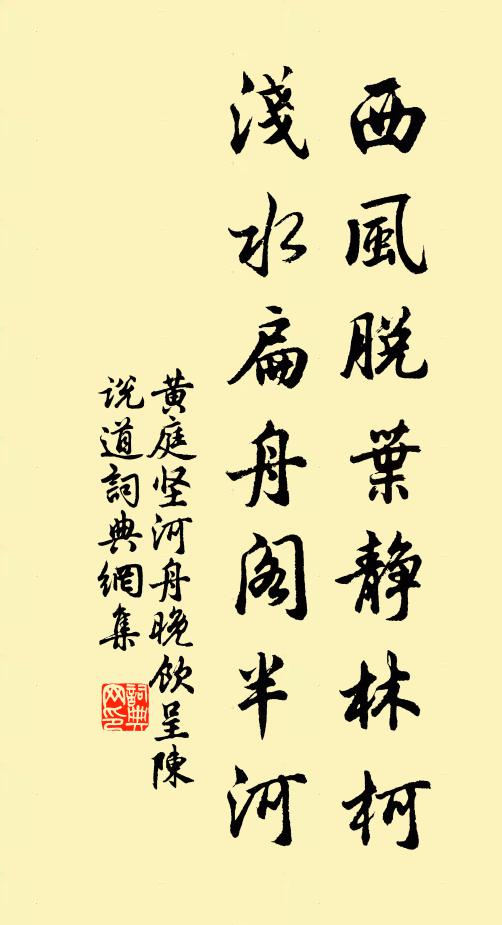 西風脫葉靜林柯
淺水扁舟閣半河
黄庭坚河舟晚飲呈陳
说道詞典網集
詞典网印